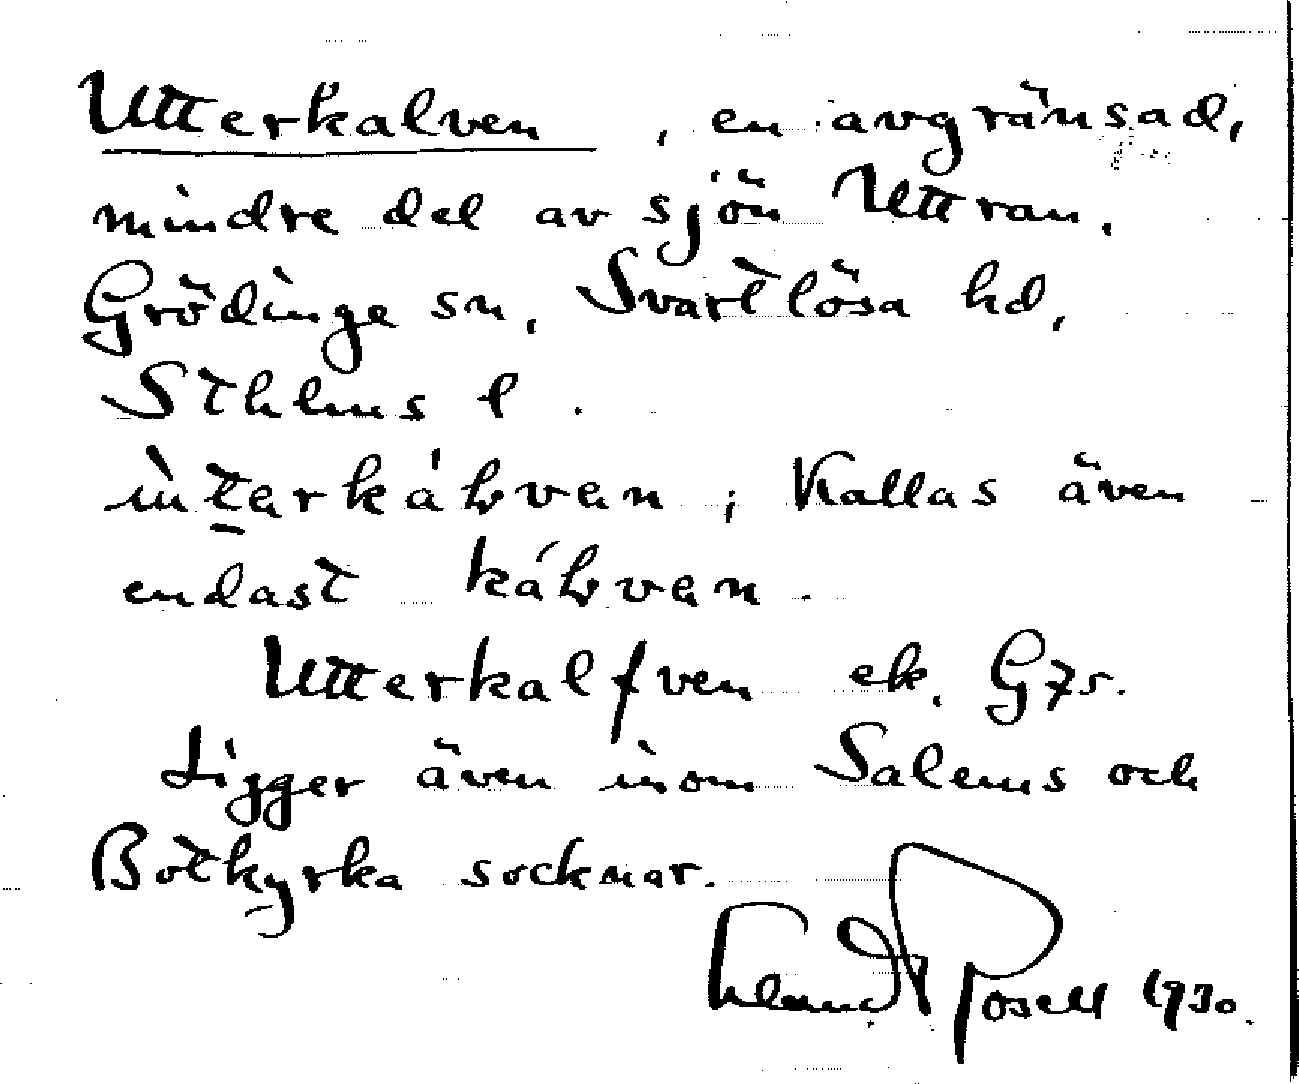 Utterkalven, en avgränsad,
mindre del av sjön Uttran,
Grödinge sn, Svartlösa hd,
Sthlms l.
; kallas även
endast
Utterkalfven ek. G75.
Ligger även inom Salems och
Botkyrka socknar.
Erland Rosell 1930.